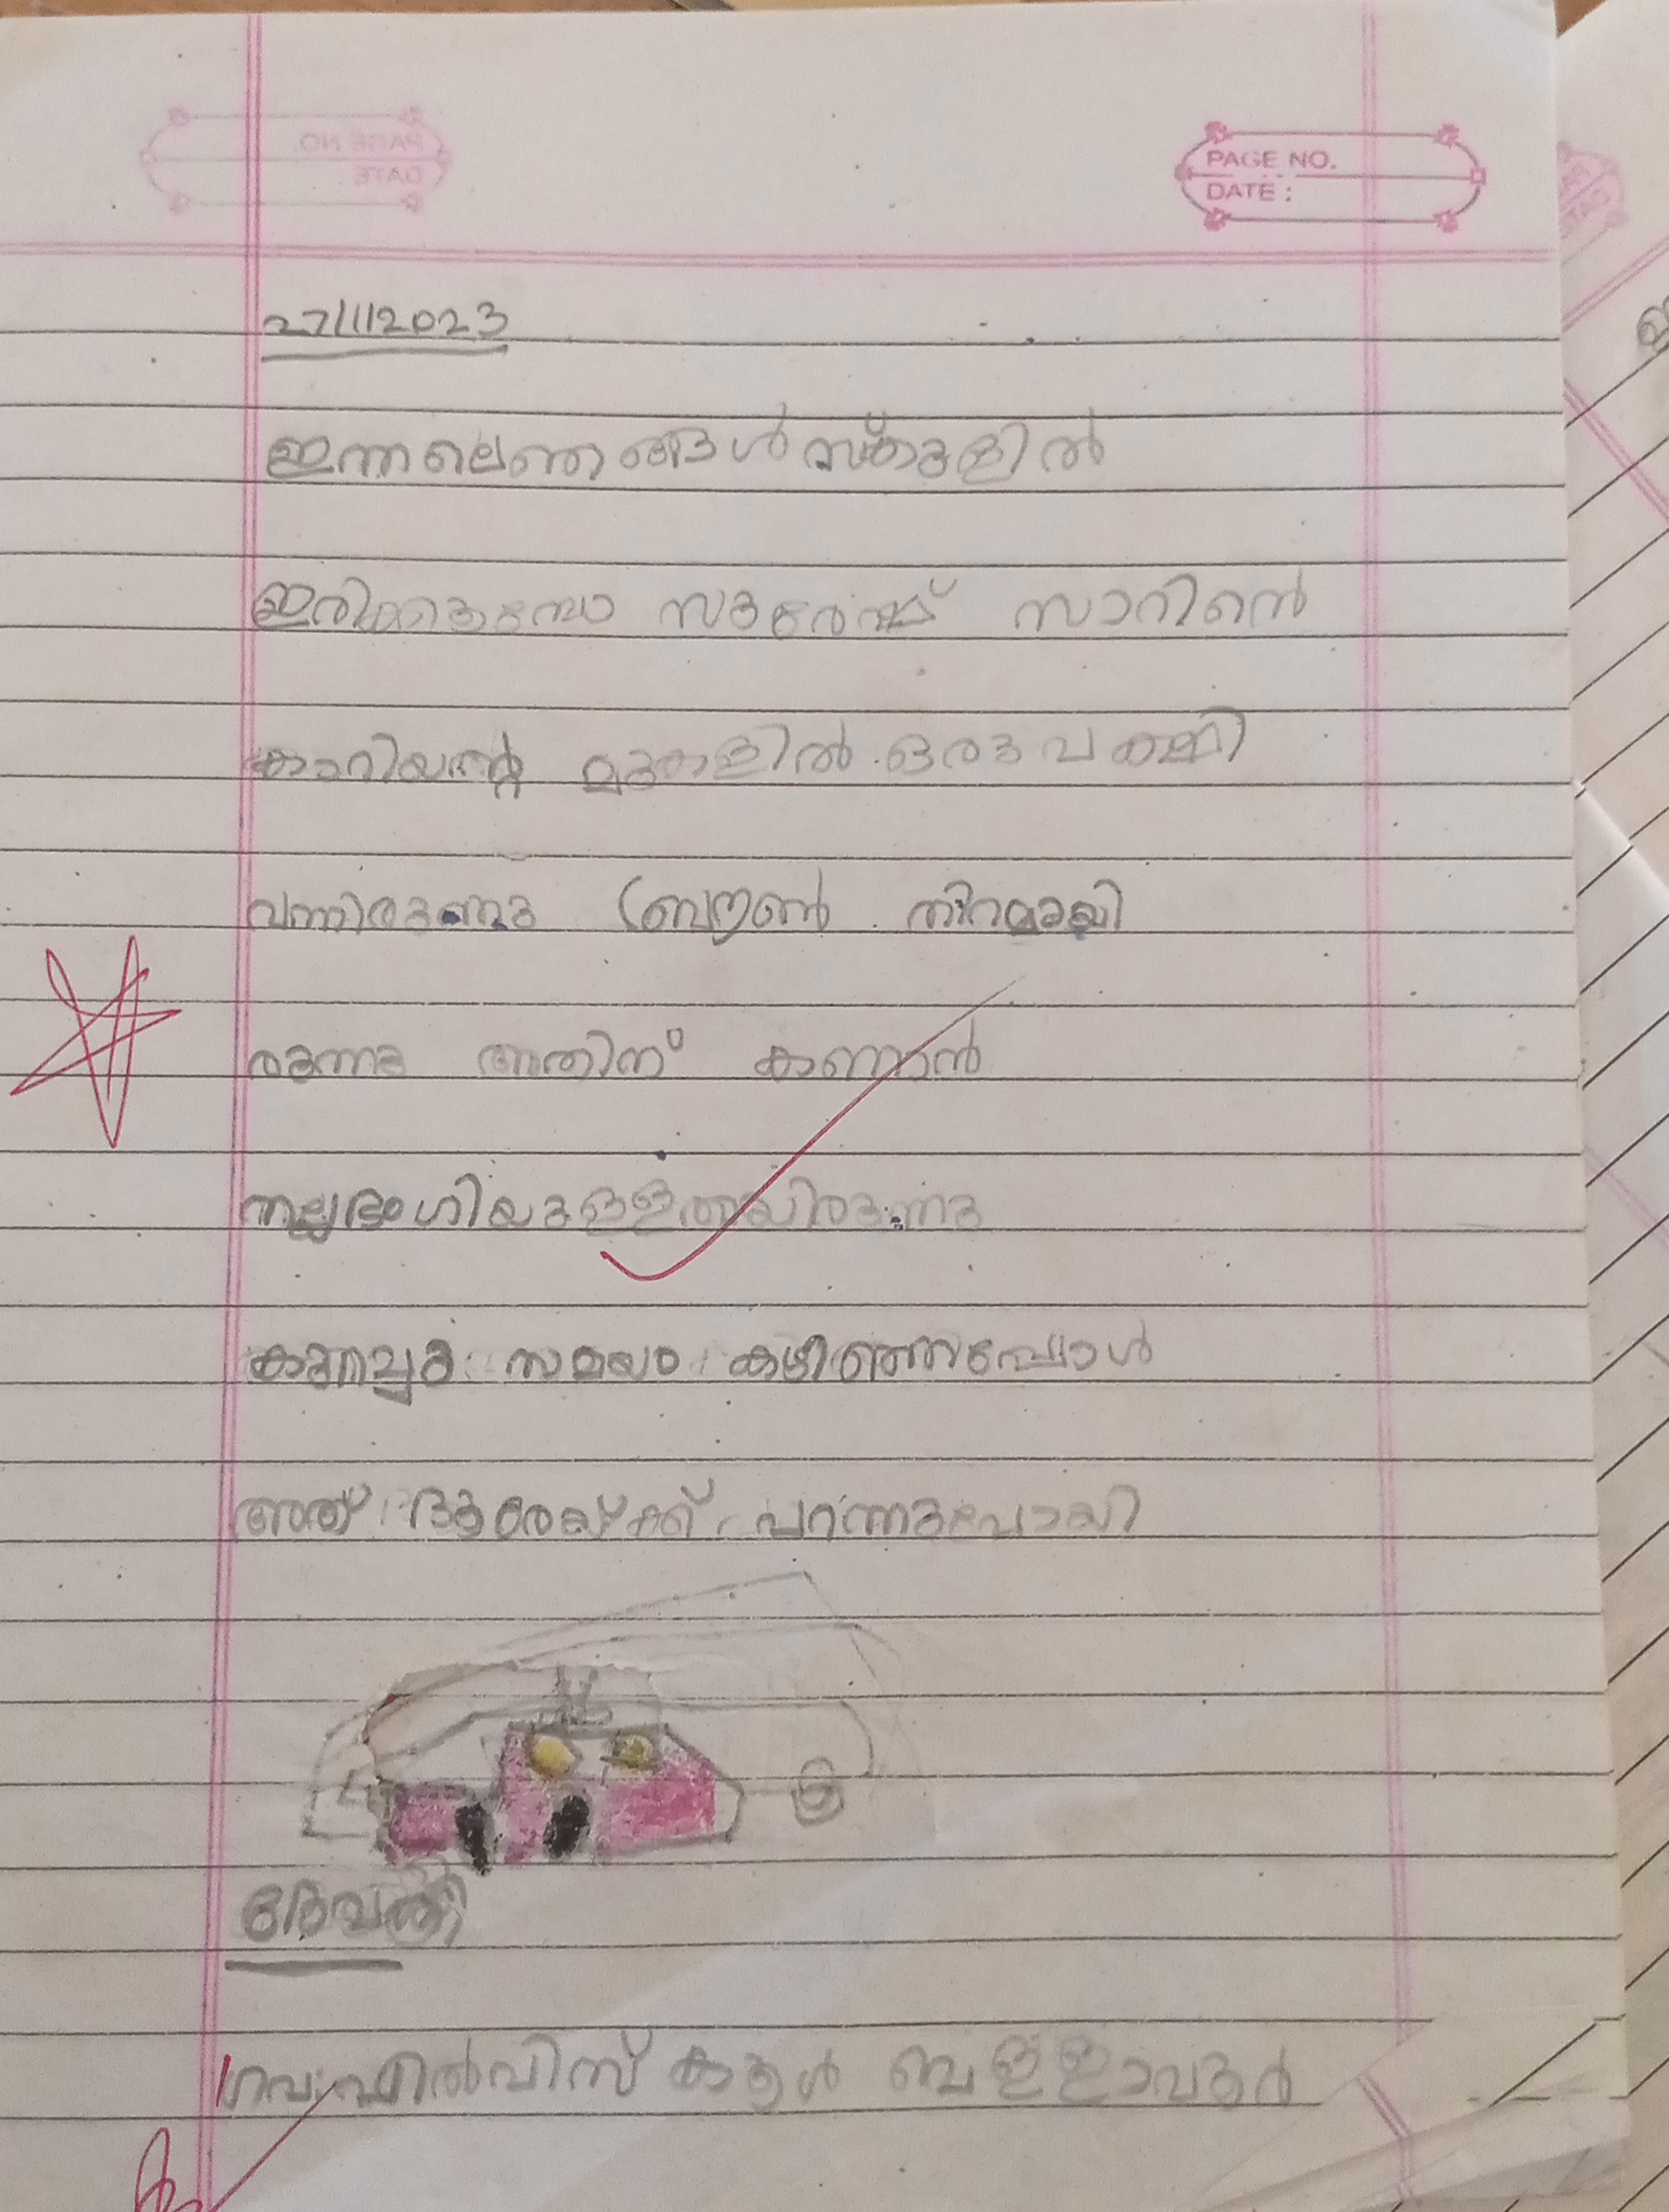 PAGE NO.
DATE :
27/11/2023
ഇന്നലെ ഞങ്ങൾ സ്കുളിൽ
ഇരിക്കുമ്പോ സുരേഷ് സാറിൻെ
കാറിയൻ്റെ മുകളിൽ ഒരു പക്ഷി
വന്നിരുന്നു ബ്രൗൺ നിറമായി
രുന്നു അതിന് കാണാൻ
നല്ലഭംഗിയുള്ളതായിരുന്നു
കുറച്ചു സമയം കഴിഞ്ഞപ്പോൾ
അത് ദൂരേയ്ക്ക് പറന്നുപോയി
രേവതി
ഗവ എൽപിസ് കൂൾ വെള്ളാവൂർ